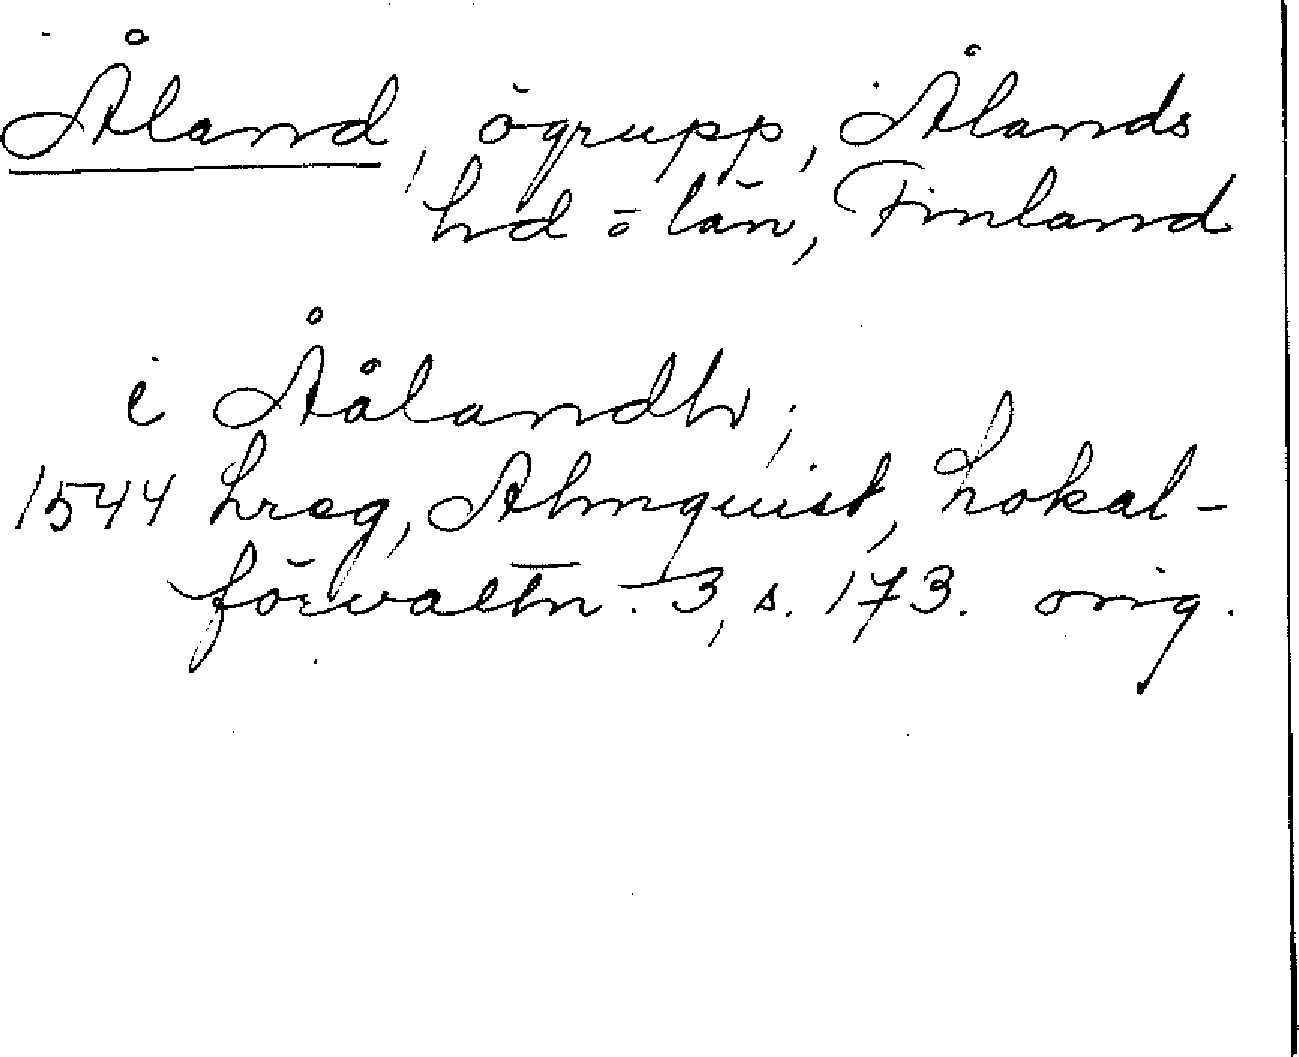 Åland, ögrupp, Ålands
hd o län, Finland
i Åålandh;
1544 Lreg, Almquist, Lokal-
förvaltn. 3, s. 173. orig.